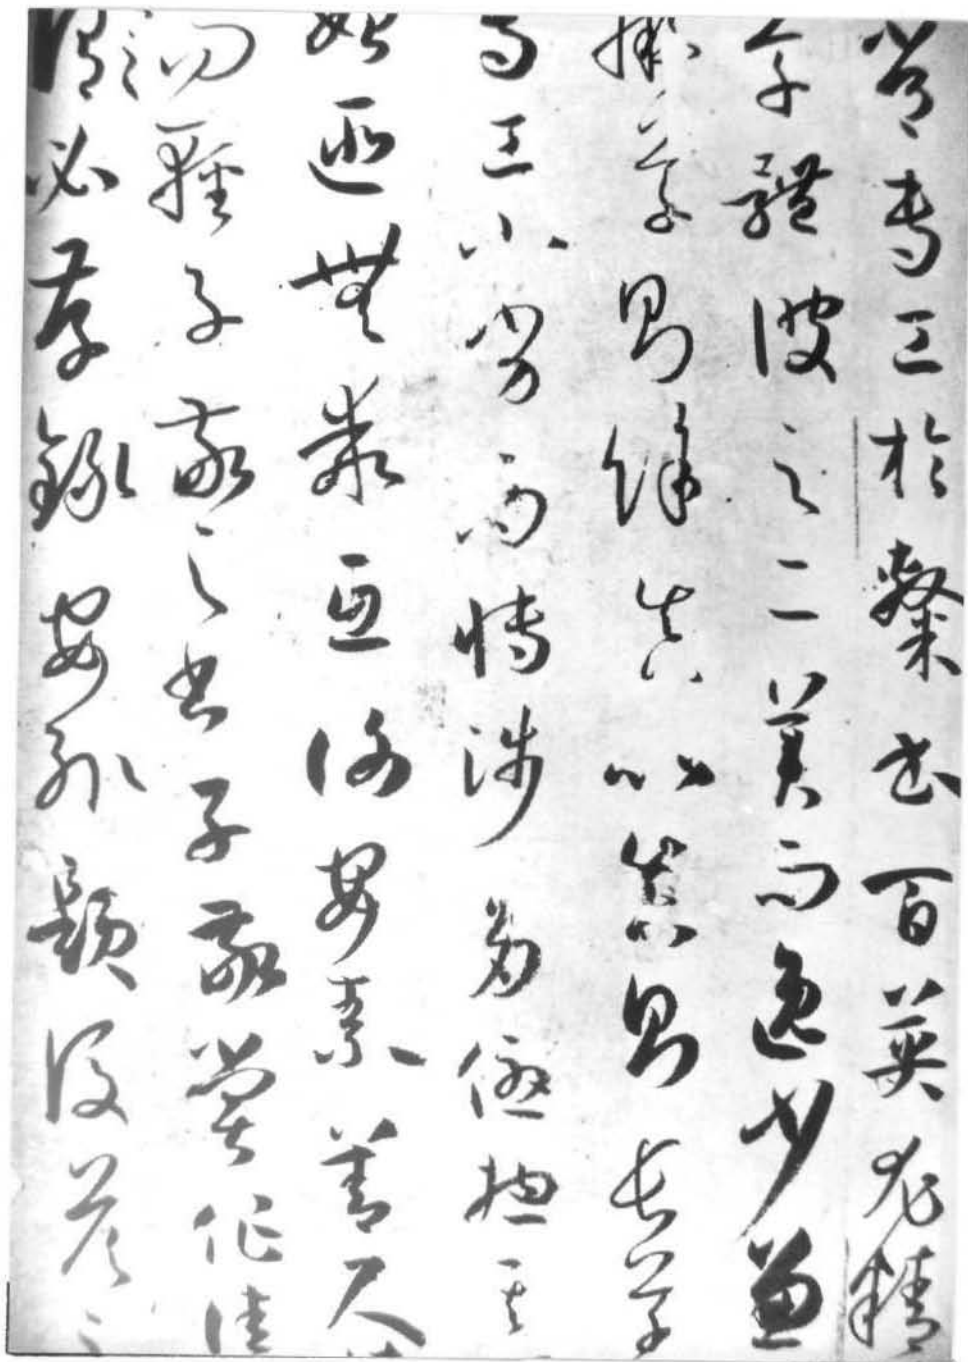 常專工於隸書百英尤精
草體彼之二美而逸少兼
擬草則餘真比真則長草
專工小劣而博涉多優揔其
始匪無乖互謝安素善尺
而輕子敬之書子敬嘗作佳
之謂必存錄安輒題後答之